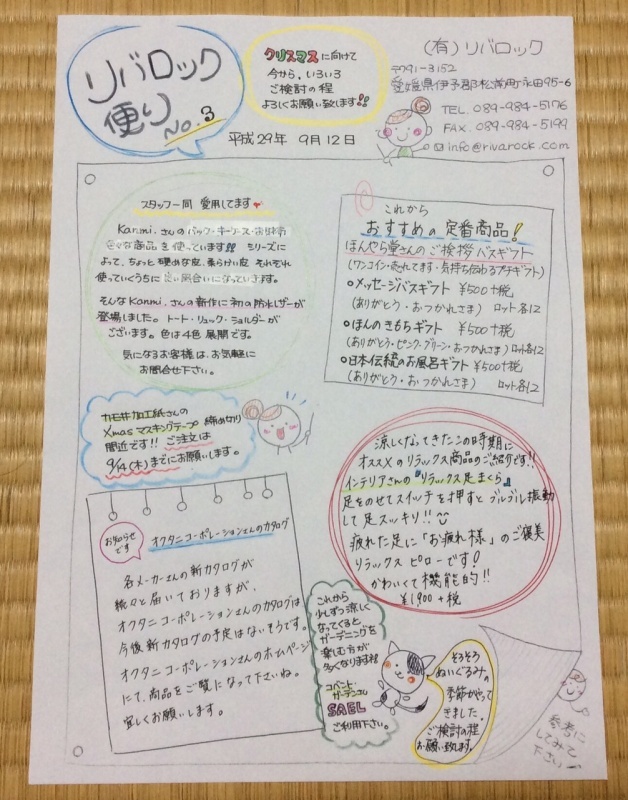 リバロック
便り
No.3
クリスマスに向けて
今から、いろいろ
ご検討の程
よろしくお願い致します!!
平成29年 9月12日
(有)リバロック
〒791-3152
愛媛県伊予郡松前町永田95-6
TEL. 089-984-5176
FAX. 089-984-5199
✉ info@rivarock.com
スタッフ一同 愛用してます
Kanmi.さんのバック・キーケース・お財布
色々な商品を使っています!! シリーズに
よって、ちょっと硬めな皮、柔らかい皮 それぞれ
使っていくうちに 良い風合いになっていきます。
そんなKanmi.さんの新作に初の防水レザーが
登場しました。トート・リュック・ショルダーが
ございます。色は4色展開です。
気になるお客様は、お気軽に
お問合せ下さい。
これから
おすすめの定番商品!
ほんやら堂さんのご挨拶バスギフト
(ワンコイン・売れてます・気持ち伝わるプチギフト)
●メッセージバスギフト ¥500+税
(ありがとう・おつかれさま) ロット各12
●ほんのきもちギフト ¥500+税
(ありがとう・ピンク・グリーン・おつかれさま) ロット各12
●日本伝統のお風呂ギフト ¥500+税
(ありがとう・おつかれさま) ロット各12
カモ井加工紙さんの
Xmasマスキングテープ 締め切り
間近です!! ご注文は
9/14(木)までにお願いします。
涼しくなってきたこの時期に
オススメのリラックス商品のご紹介です!!
インテリアさんの『リラックス足まくら』
足をのせてスイッチを押すとブルブル振動
して足スッキリ!!
疲れた足に「お疲れ様」のご褒美
リラックスピローです!
かわいくて機能的!!
¥1,900+税
お知らせ
です
オクタニコーポレーションさんのカタログ
各メーカーさんの新カタログが
続々と届いておりますが、
オクタニコーポレーションさんのカタログは
今後新カタログの予定はないそうです。
オクタニコーポレーションさんのホームページ
にて、商品をご覧になって下さいね。
宜しくお願いします。
これから
少しずつ涼しく
なってくると
ガーデニングを
楽しむ方が
多くなります!!
コベント
ガーデンさん
SAEL
ご利用下さい。
そろそろ
ぬいぐるみの
季節がやって
きました。
ご検討の程
お願い致します。
参考に
してみて
下さい